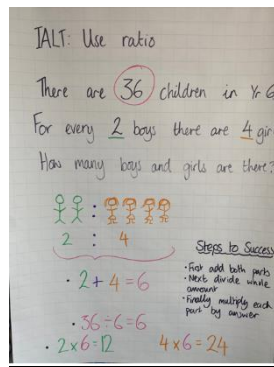 IALT: Use ratio
There are 36 children in Yr 6
For every 2 boys there are 4 gir
How many boys and girls are there?
:
2 : 4
Steps to Success
• First add both parts
• Next divide whole
amount
• Finally multiply each
part by answer
• 2 + 4 = 6
• 36 ÷ 6 = 6
• 2 x 6 = 12 4 x 6 = 24